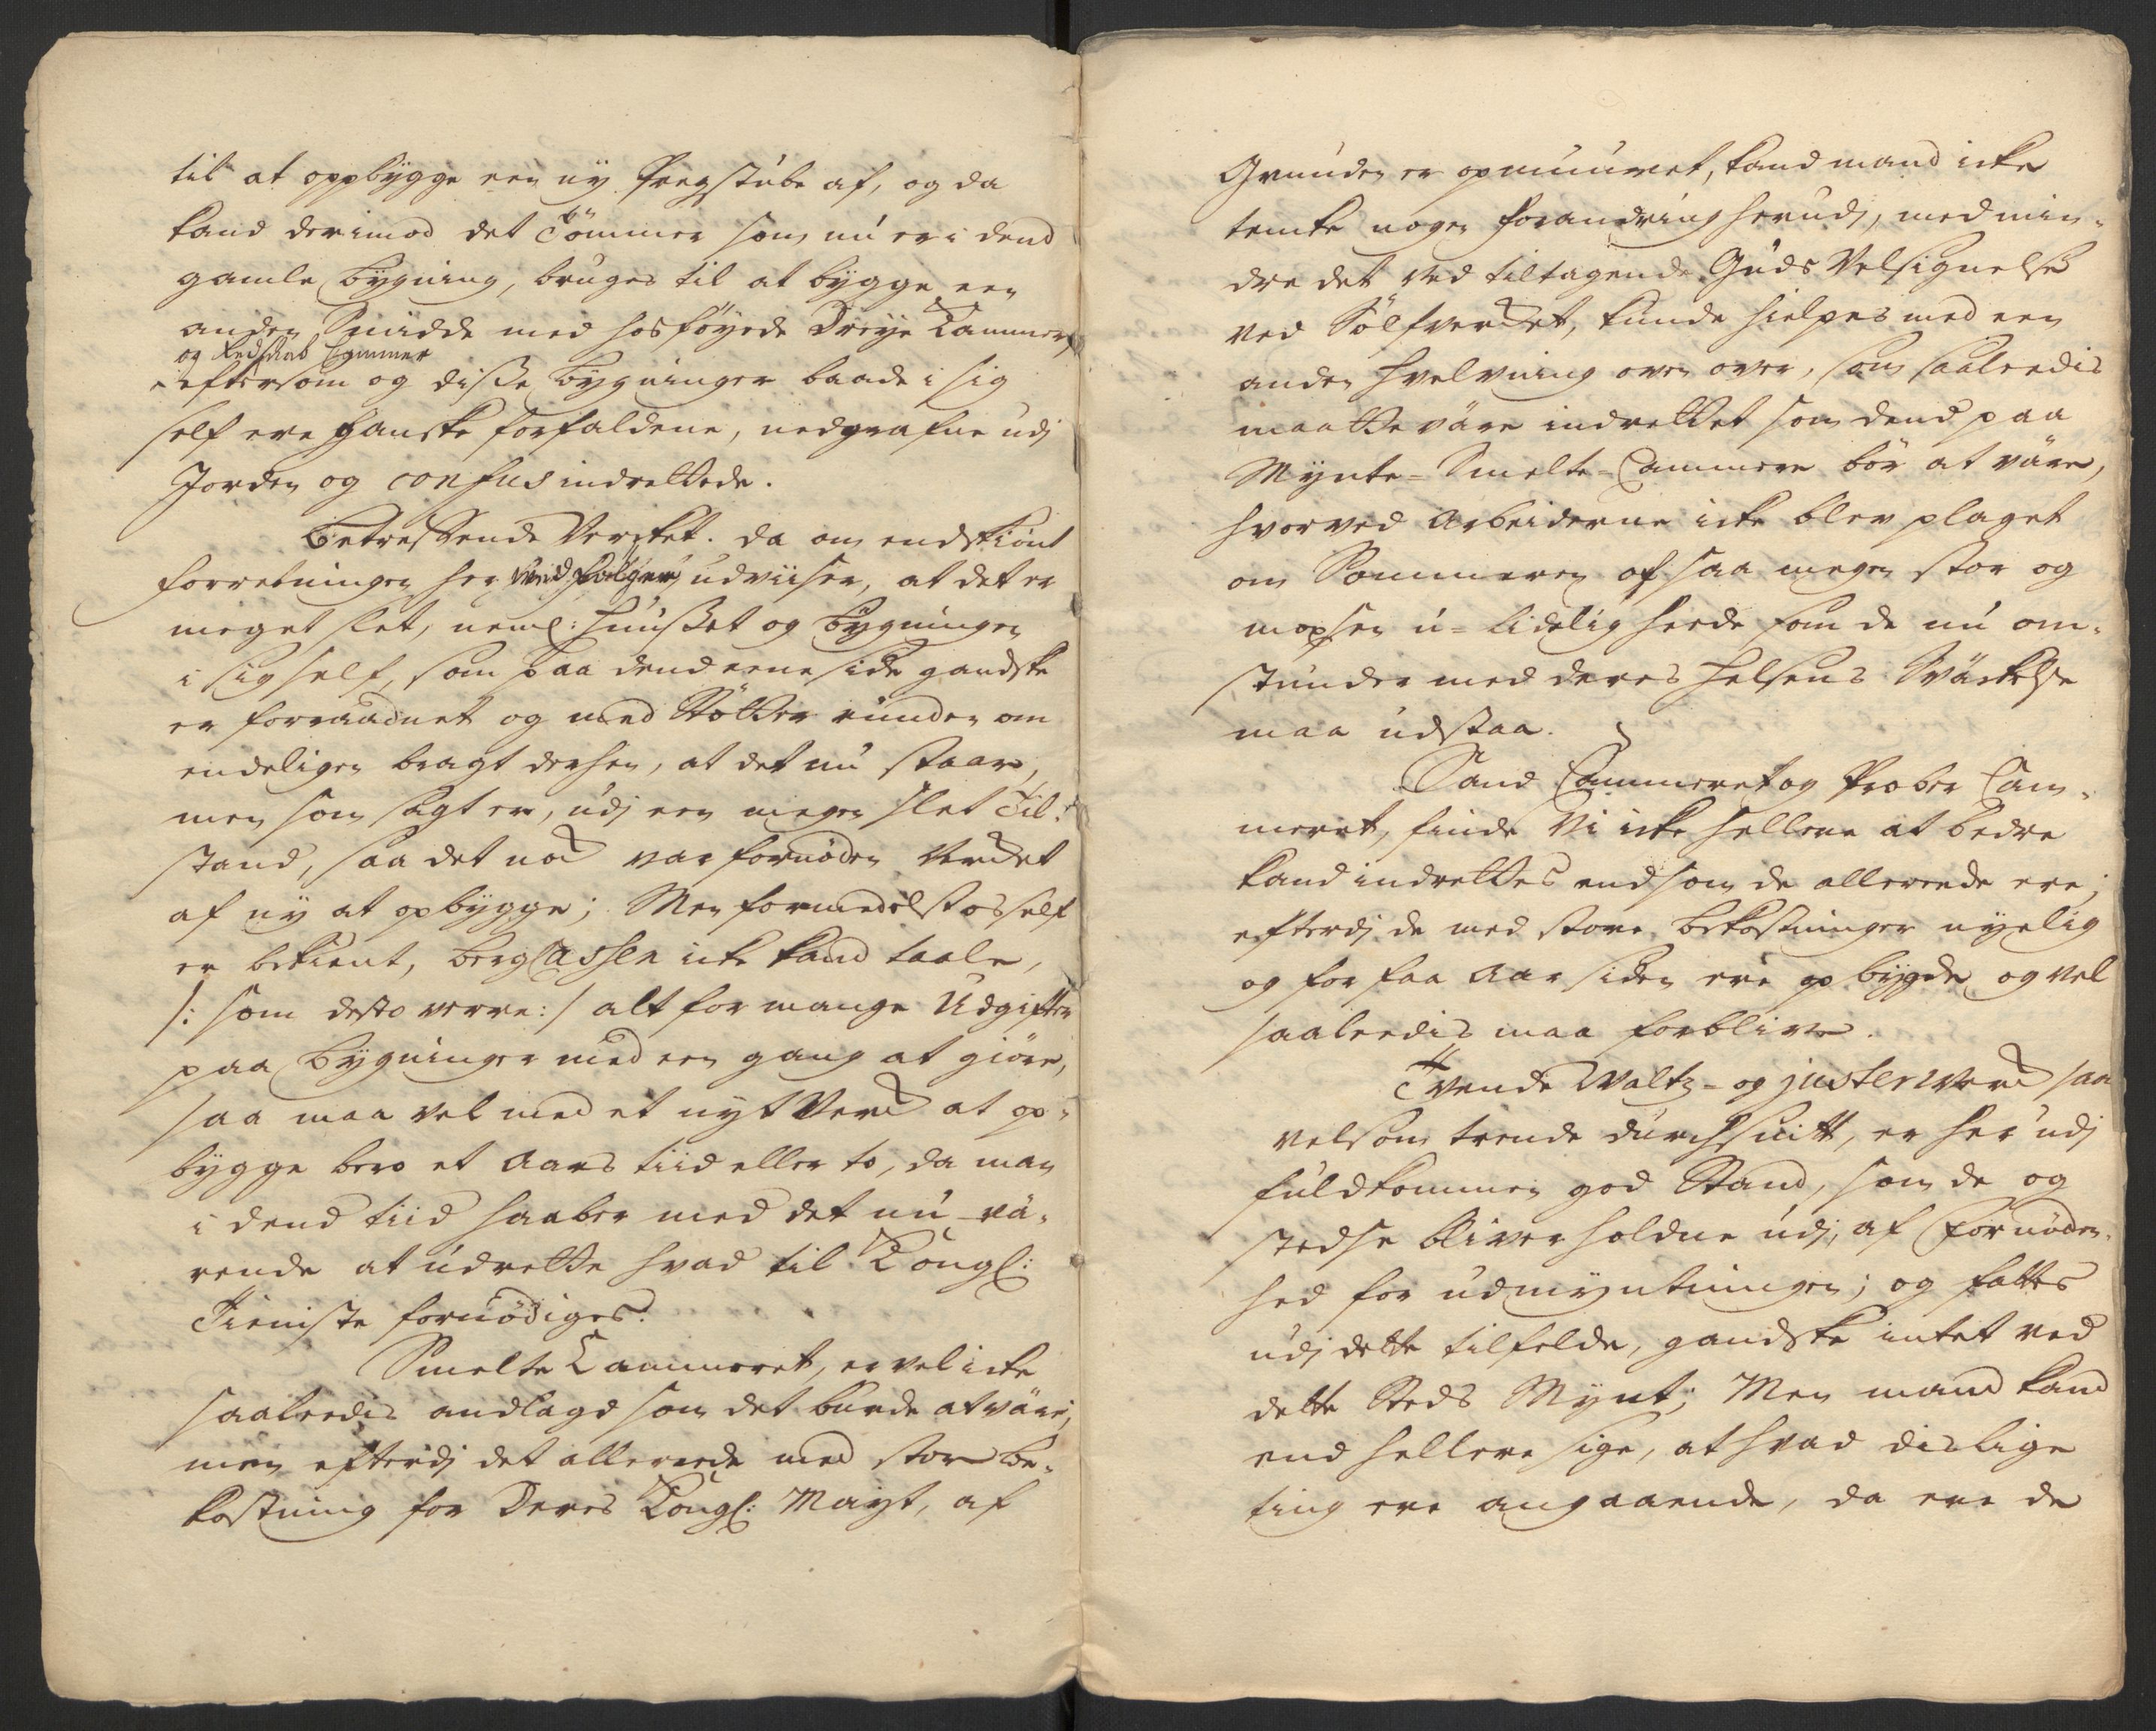 til at oppbygge een ny Pregstube af, og da
kand derimod det Tömmer som nu er i dend
gamle bygning, bruges til at bygge een
anden Smidde med hosföyede Dreye Kammer,
og Redskab Cammer
eftersom og disse bygninger baade i sig
self ere ganske forfaldene, nedgrafne udj
Jorden og confus indrettede.
Betreffende Vercket. da om endskiönt
forretningen her ved fölger, udviiser, at det er
meget slet, neml: Huusset og bygningen
i sig self, som paa dend eene side gandske
er forraadnet og med Stötter runden om
endeligen bragt derhen, at det nu staar,
men som sagt er, udj een megen slet Til-
stand, saa det nock var fornöden Vercket
af ny at opbygge; Men formedelst os self
er bekient, berg Cassen icke kand taale,
/: som desto verre :/ alt for mange Udgifter
paa bygninger med een gang at giöre,
saa maa vel med et nyt Verck at op-
bygge bero et Aars tiid eller to, da man
i dend tiid haaber med det nu vä-
rende at udrette hvad til Kongl:
Tieniste fornödiges.
Smelte Cammeret, er vel icke
saaleedis andlagd som det burde at väre,
men efterdj det allereede med stor be-
kostning for Deres Kongl: Mayt, af
Grunden er opmuuret, kand mand icke
tencke nogen forandring herudj, med min-
dre det ved tiltagende Guds Velsignelse
ved Sölfvercket, kunde hielpes med een
anden Hvelvning oven over, som saaleedis
maatte väre indrettet som dend paa
Mynte-Smelte-Cammere bör at väre,
hvorved Arbeiderne icke blev plaget
om Sommeren af saa megen stor og
mossen u-lidelig heede som de nu om-
stunder med deres helsens Sväckelse
maa udstaa.
Sand Cammeret og Prober Cam-
meret, finde Vi icke hellere at bedre
kand indrettes end som de allereede ere;
efterdj de med store bekostninger nyelig
og for faa Aar siden ere opbygde og vel
saaleedis maa forblive.
Tvende Waltz- og justerVerck saa
velsom trende durchsnitt, er her udj
fuldkommen god Stand, som de og
stedse bliver holdne udj, af fornöden-
hed for udmyntningen; og fattes
udj dette tilfelde, gandske intet ved
dette Steds Mynt; Men mand kand
end hellere sige, at hvad dislige
ting ere angaaende, da ere de